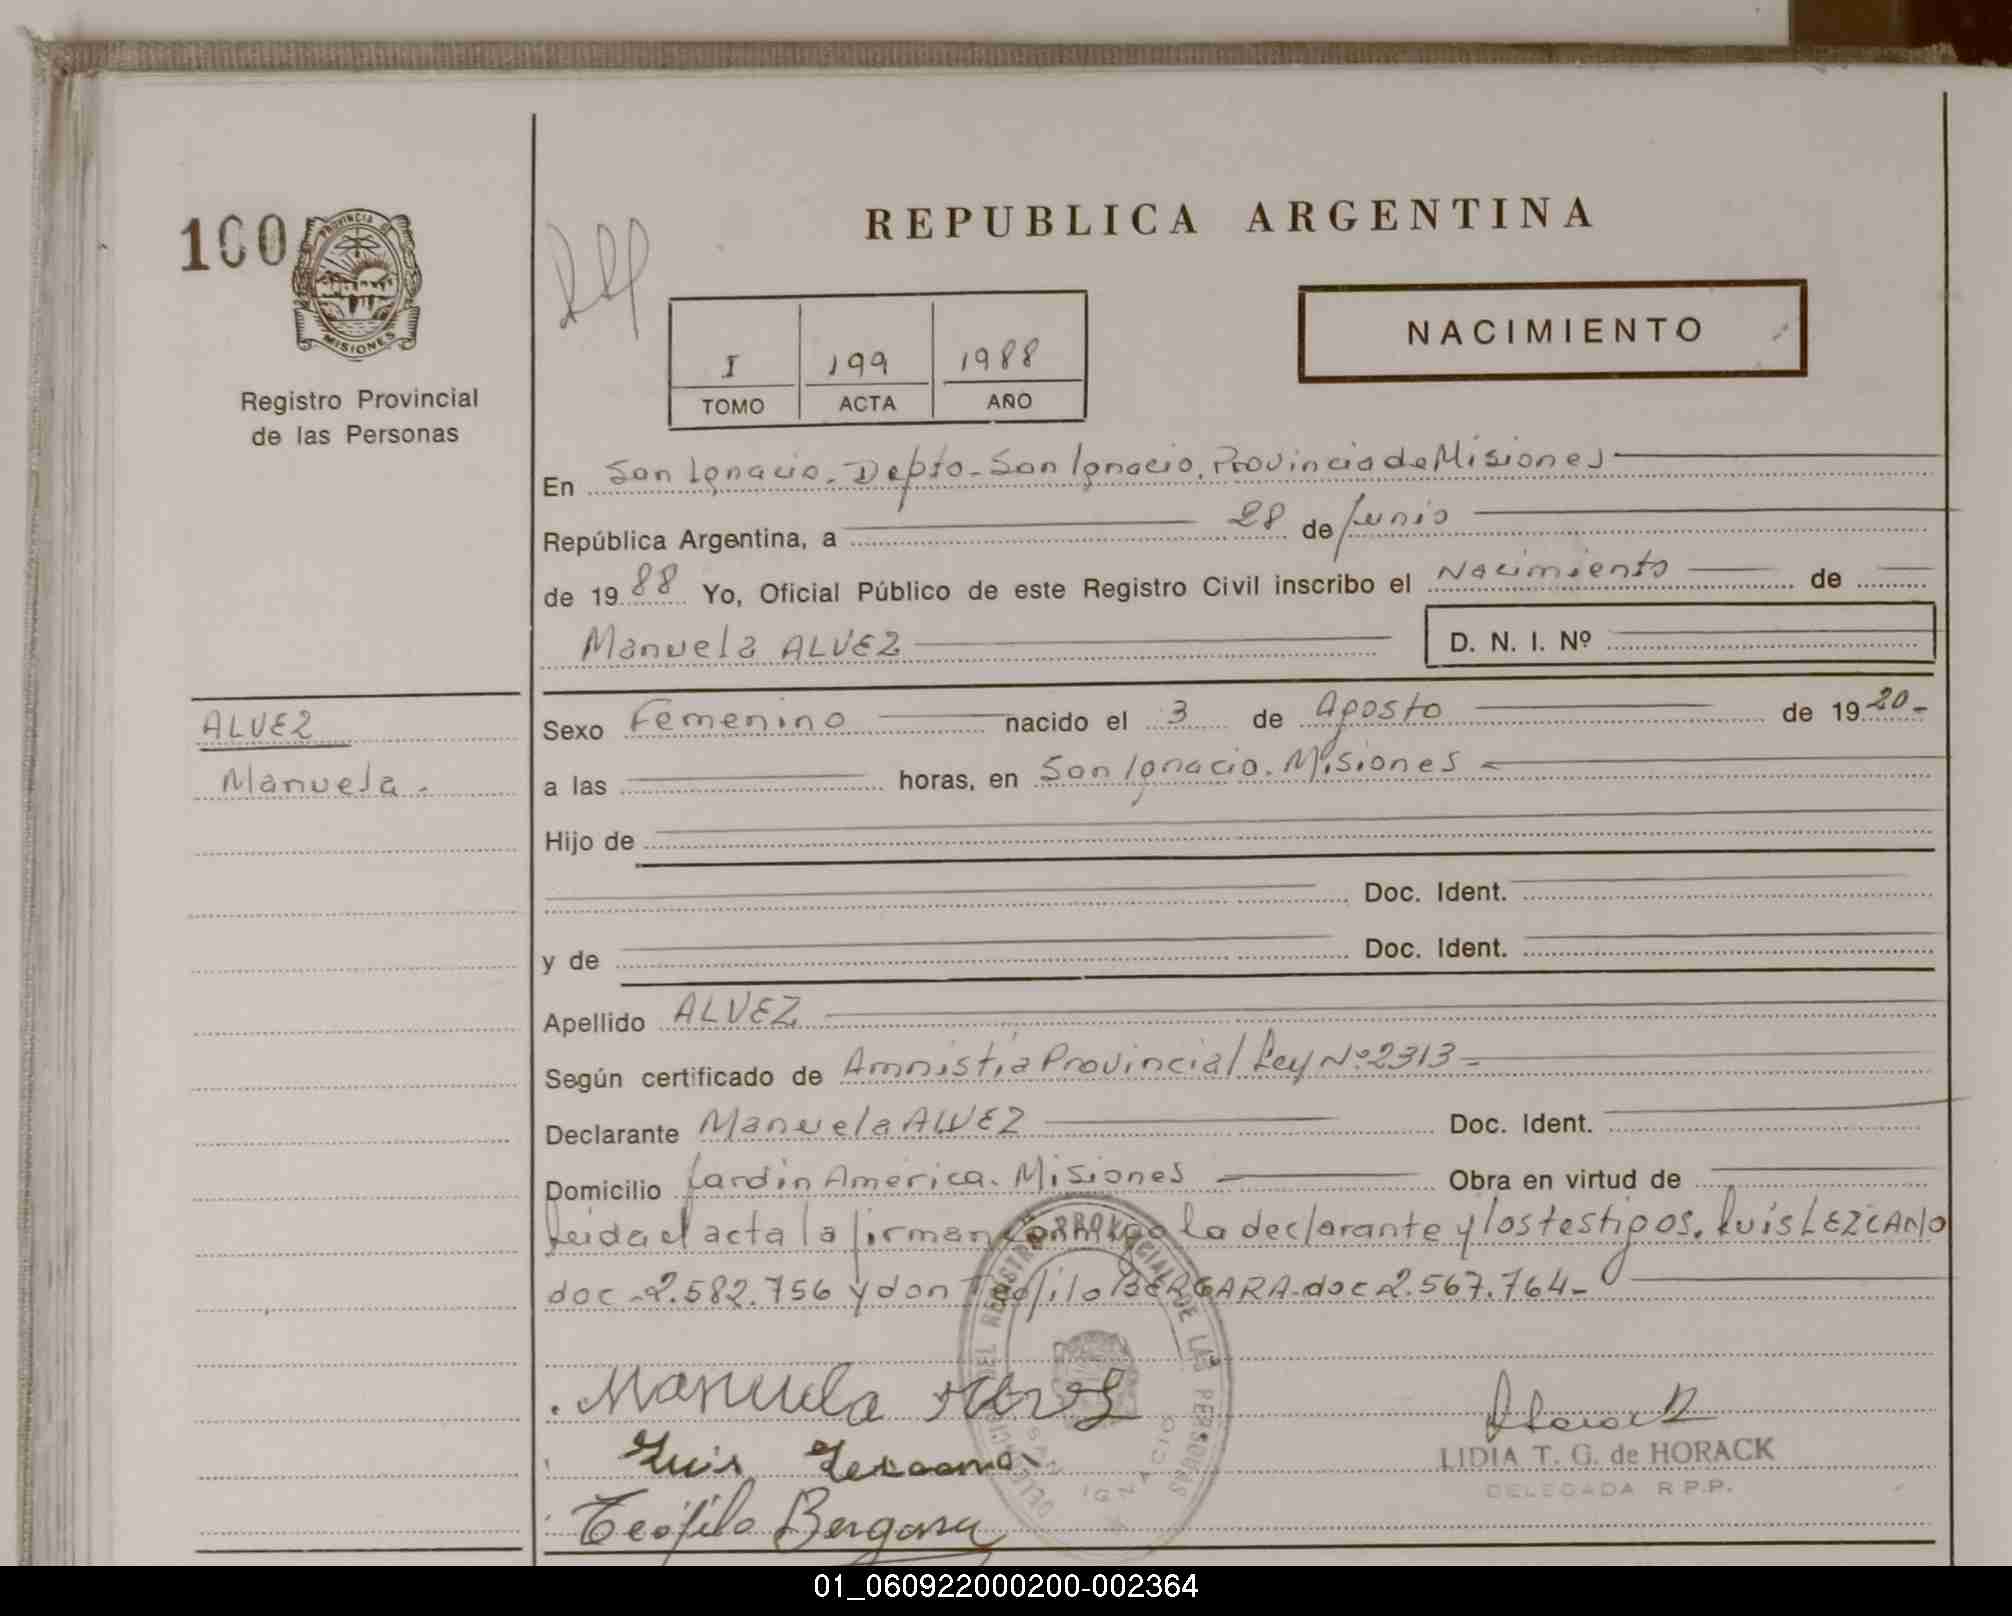 REPUBLICA ARGENTINA
100
PROVINCIA DE
MISIONES
Registro Provincial
de las Personas
I 199 1988
TOMO ACTA AÑO
NACIMIENTO
En San Ignacio. Depto. San Ignacio. Provincia de Misiones
República Argentina, a 28 de Junio
de 1988 Yo, Oficial Público de este Registro Civil inscribo el Nacimiento de
Manuela ALVEZ D. N. I. Nº
ALVEZ
Manuela.
Sexo Femenino nacido el 3 de Agosto de 1920-
a las horas, en San Ignacio. Misiones
Hijo de
Doc. Ident.
y de Doc. Ident.
Apellido ALVEZ
Según certificado de Amnistía Provincial Ley Nº 2313-
Declarante Manuela ALVEZ Doc. Ident.
Domicilio Jardín América. Misiones Obra en virtud de
Leida el acta la firman conmigo la declarante y los testigos. Luis LEZCANO
doc-2.582.756 y don Teofilo BERGARA-doc 2.567.764-
DEL REGISTRO PROVINCIAL DE LAS PERSONAS
SAN IGNACIO
Manuela Alvez
Luis Lezcano
Teófilo Bergara
Horack
LIDIA T. G. de HORACK
DELEGADA R.P.P.
01_060922000200-002364